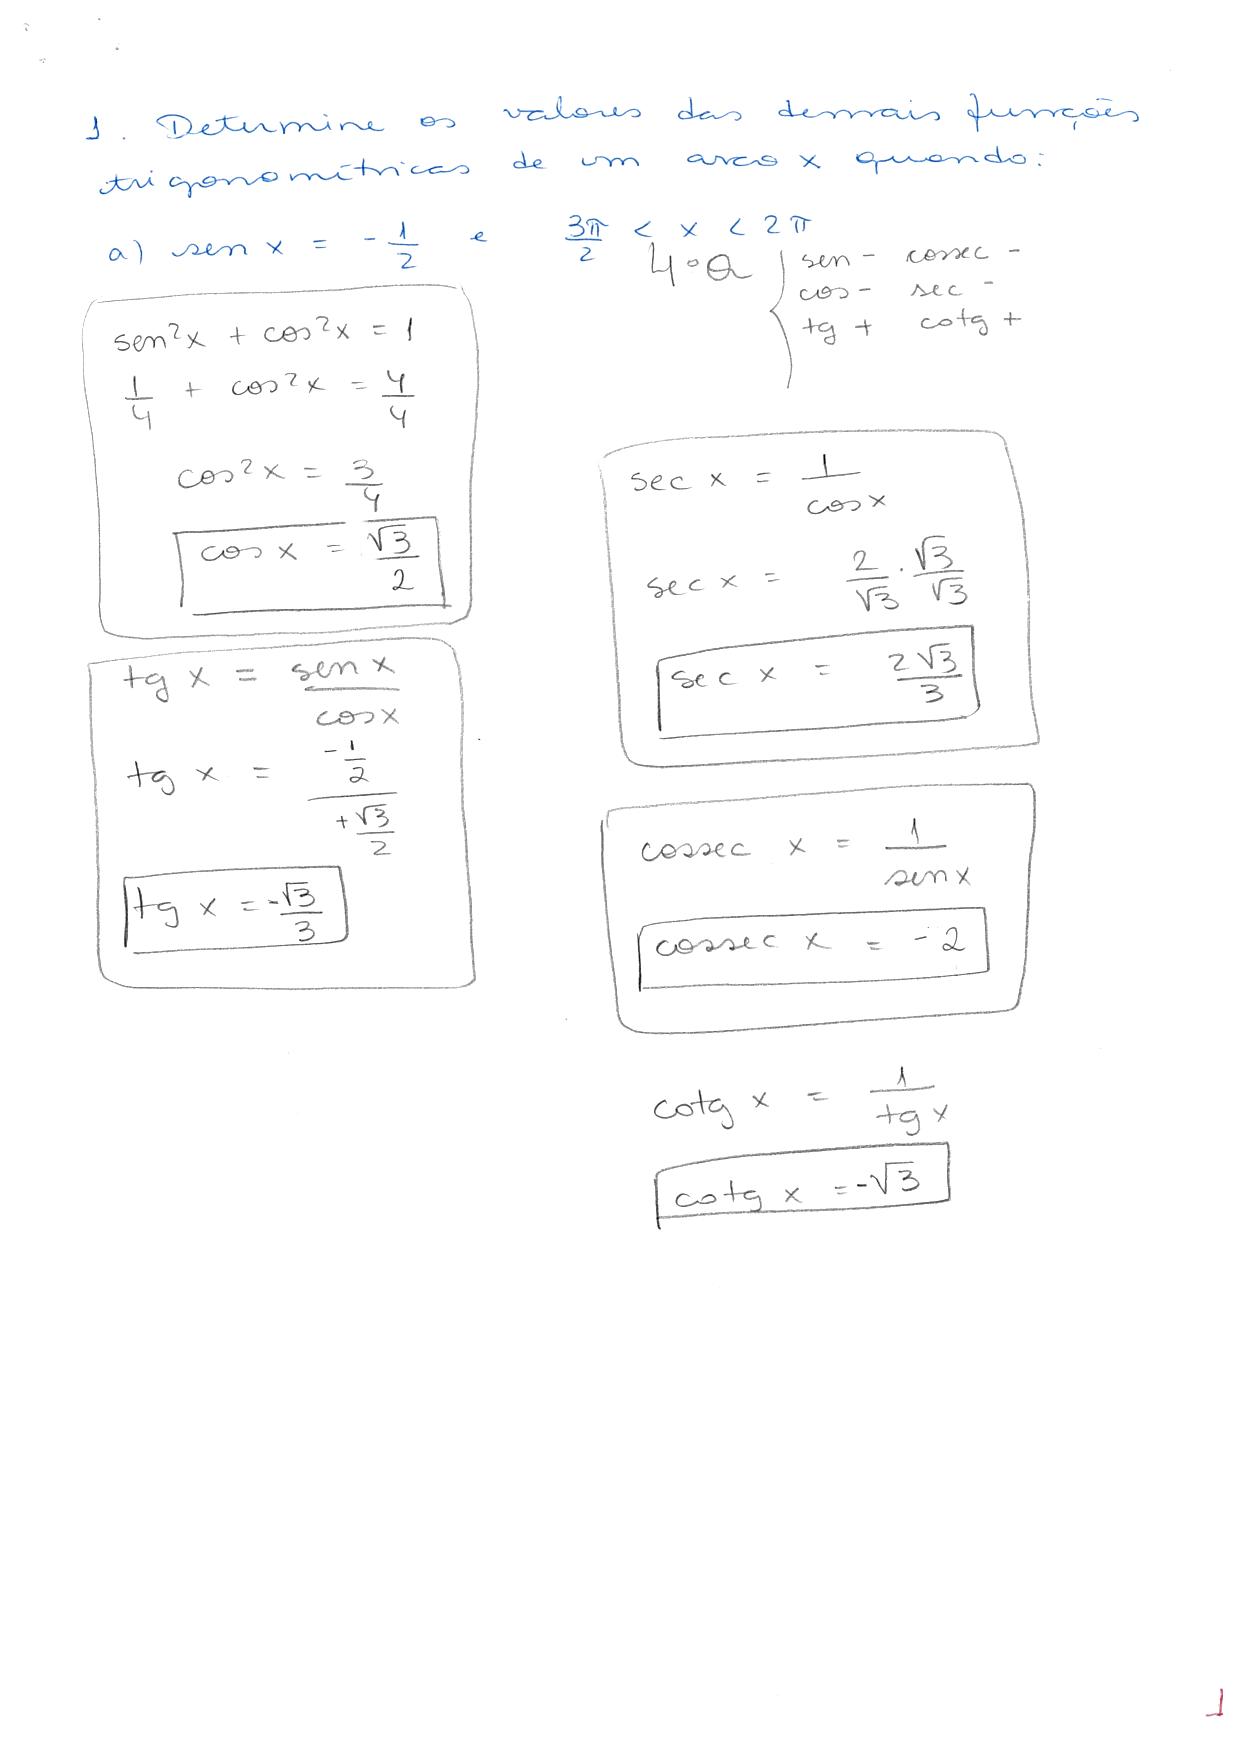 1. Determine os valores das demais funções
trigonométricas de um arco x quando:
a) sen x = -1/2 e 3π/2 < x < 2π
4ºQ { sen - cossec -
cos - sec -
tg + cotg +
sen²x + cos²x = 1
1/4 + cos²x = 4/4
cos²x = 3/4
cos x = √3/2
tg x = sen x/cos x
tg x = -1/2 / +√3/2
tg x = -√3/3
sec x = 1/cos x
sec x = 2/√3 . √3/√3
sec x = 2√3/3
cossec x = 1/sen x
cossec x = -2
cotg x = 1/tg x
cotg x = -√3
1